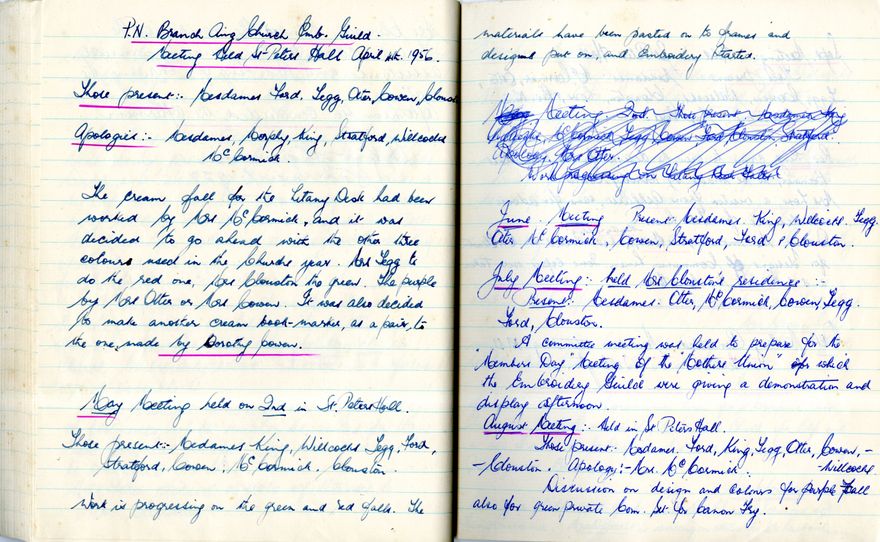 P.N. Branch Ang Church Emb. Guild.
Meeting Held St Peters Hall April 4th. 1956.
Those present:- Mesdames Ford, Legg, Otter, Cowen, Clouston
Apologies:- Mesdames, Morphy, King, Stratford, Willcocks
McCormick.
The cream fall for the Litany Desk had been
worked by Mrs McCormick, and it was
decided to go ahead with the other three
colours used in the Church year. Mrs Legg to
do the red one, Mrs Clouston the green. The purple
by Mrs Otter or Mrs Cowen. It was also decided
to make another cream book-marker, as a pair, to
the one, made by Dorothy Cowen.
May Meeting held on 2nd in St. Peters Hall.
Those present:- Mesdames King, Willcocks Legg, Ford,
Stratford, Cowen, McCormick, Clouston.
Work is progressing on the green and red falls. The
materials have been pasted on to frames and
designs put on, and Embroidery started.
Meeting 2nd. Those present Mesdames King
McCormick Legg, Cowen Ford Clouston, Stratford.
Apology, Mrs Otter.
Work progressing on Litany Desk Falls
June Meeting Present Mesdames. King, Willcocks. Legg.
Otter McCormick, Cowen, Stratford, Ford & Clouston.
July Meeting:- held Mrs Clouston's residence:-
Present: Mesdames. Otter, McCormick, Cowen, Legg.
Ford, Clouston.
A committee meeting was held to prepare for the
"Members Day" Meeting of the "Mothers Union" at which
the Embroidery Guild were giving a demonstration and
display afternoon.
August Meeting:- Held in St Peters Hall.
Those present:- Mesdames. Ford, King, Legg, Otter, Cowen, -
- Clouston. Apology:- Mrs. McCormick. - Willcocks.
Discussion on design and colours for purple fall
also for green private Com. Set. for Canon Fry.